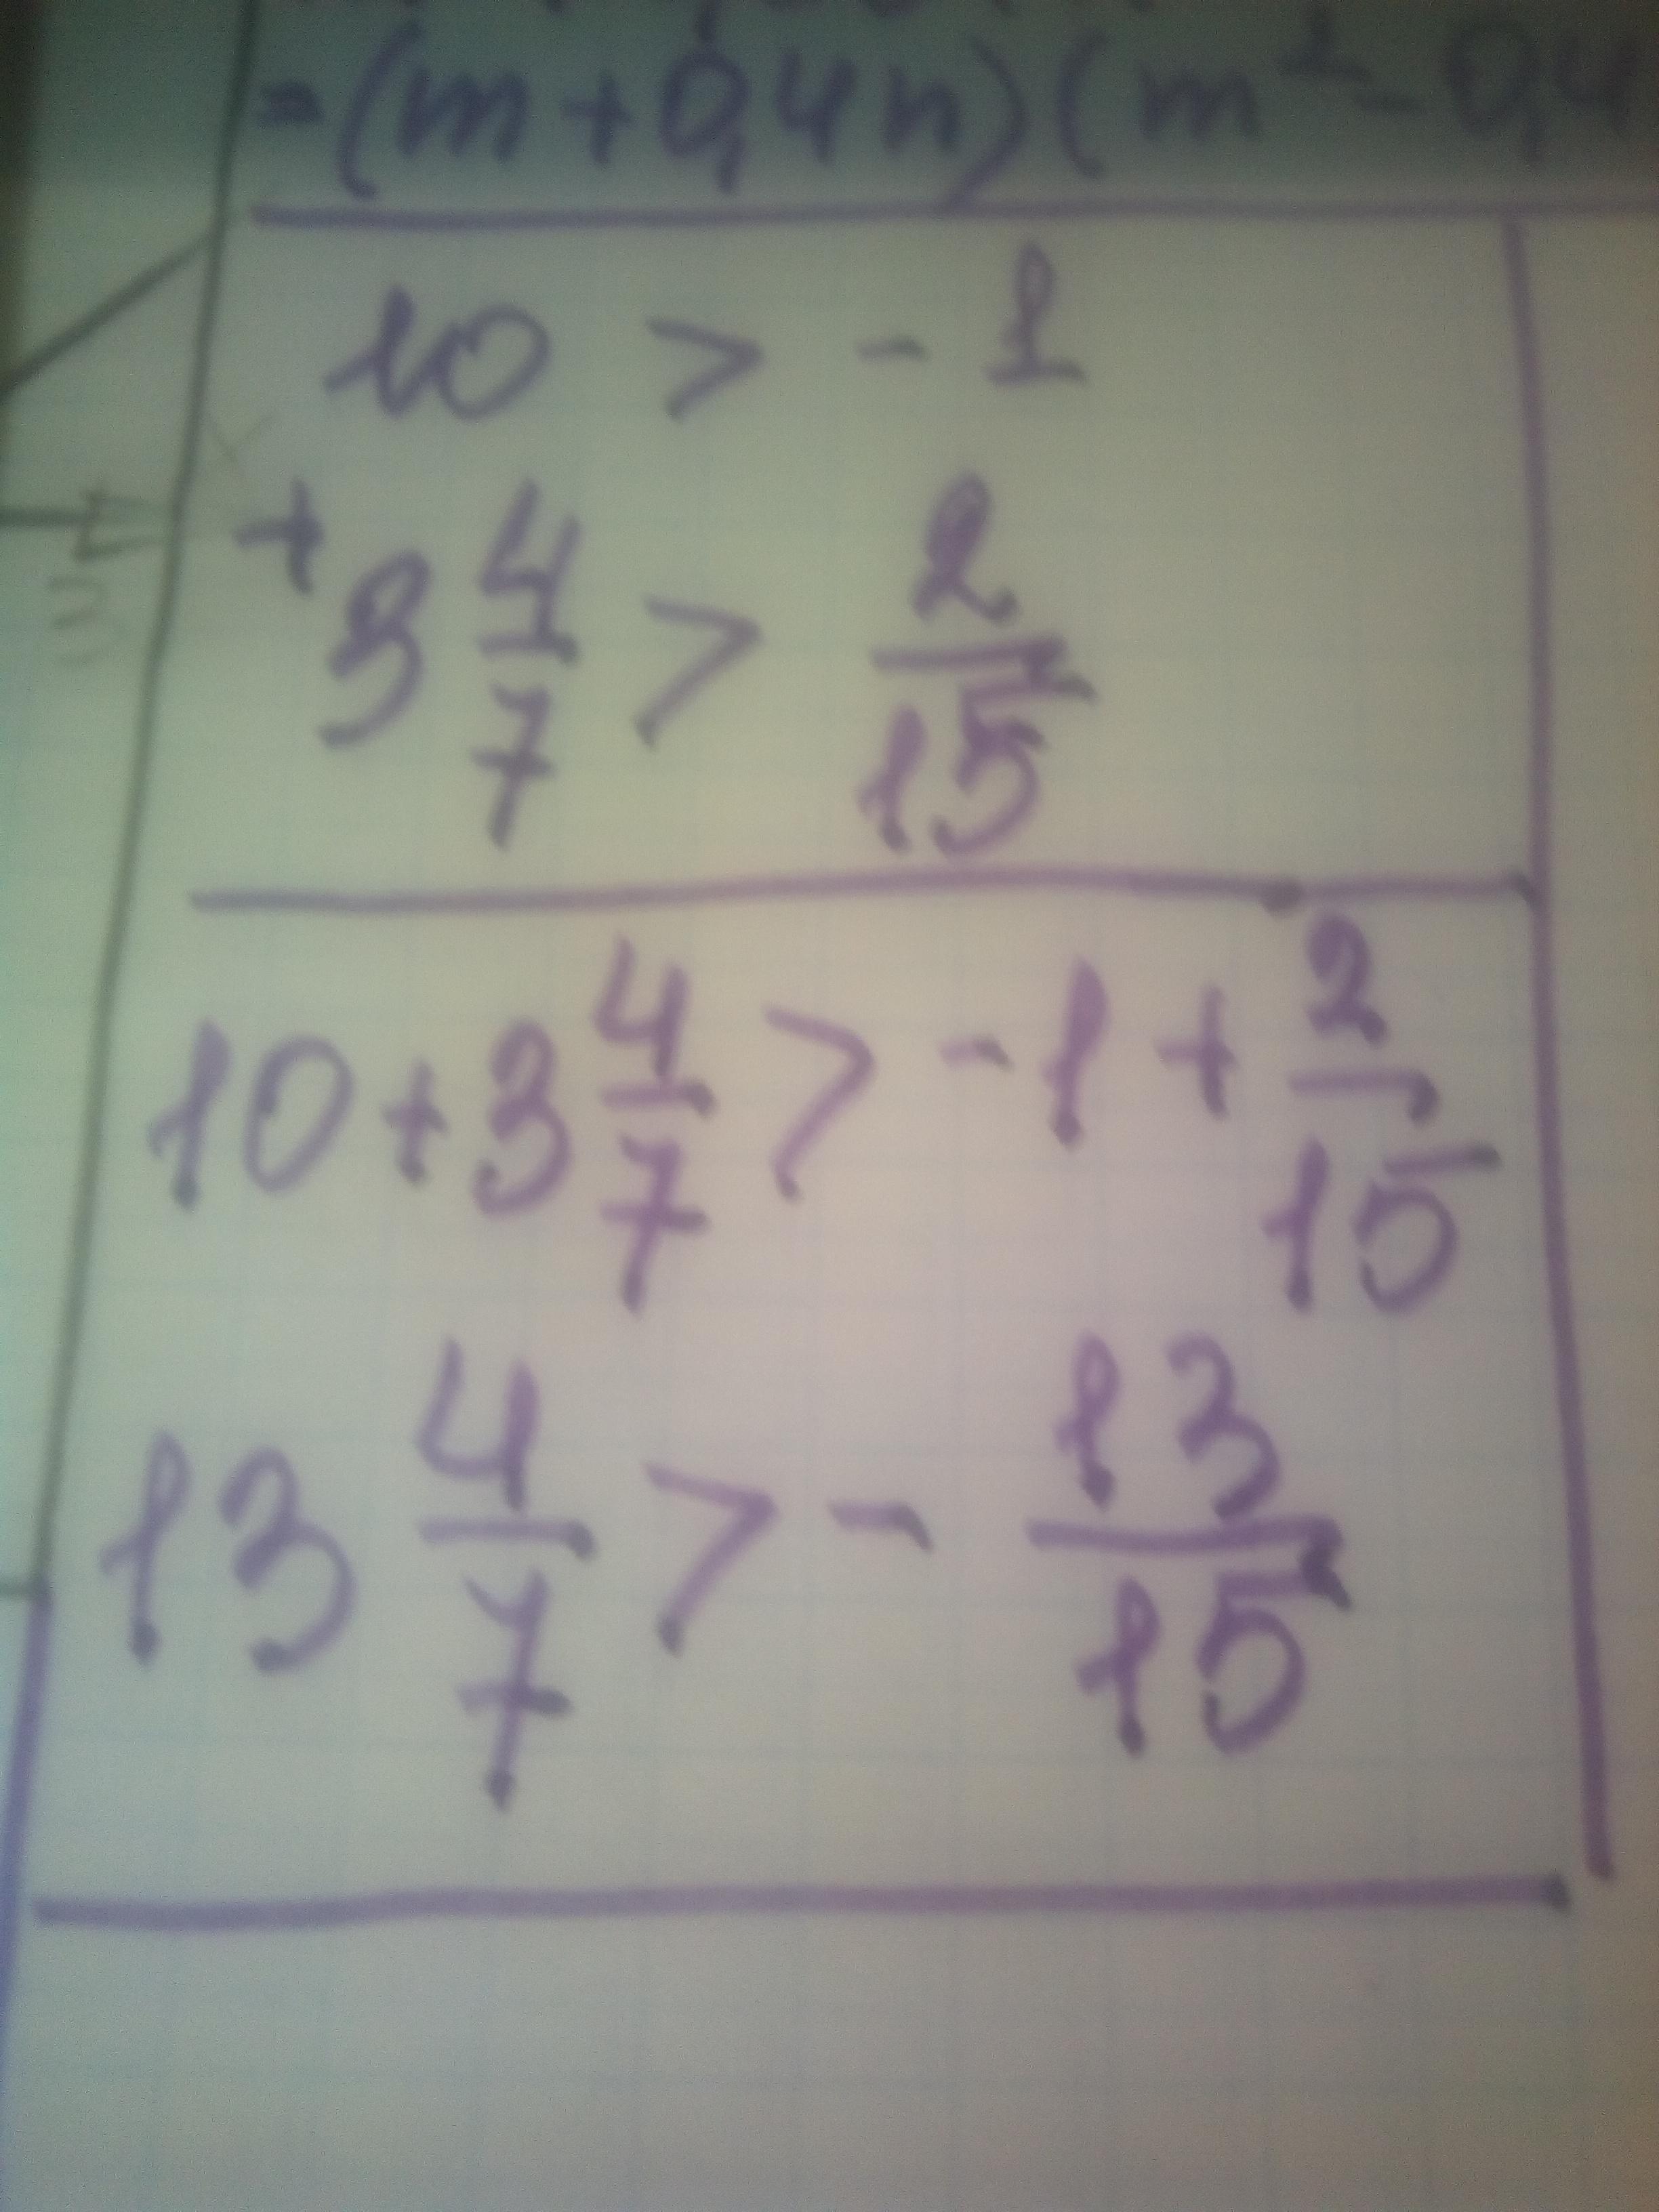 =(m+0,4n)(m²-0,4
10 > -1
+
3 4/7 > 2/15
10+3 4/7 > -1+ 2/15
13 4/7 > - 13/15